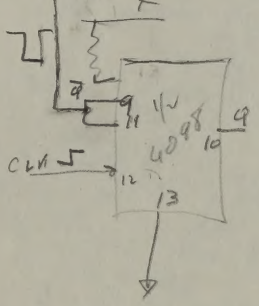 Q̅
9
11
1/2
4098
10
Q
CLK
12
13